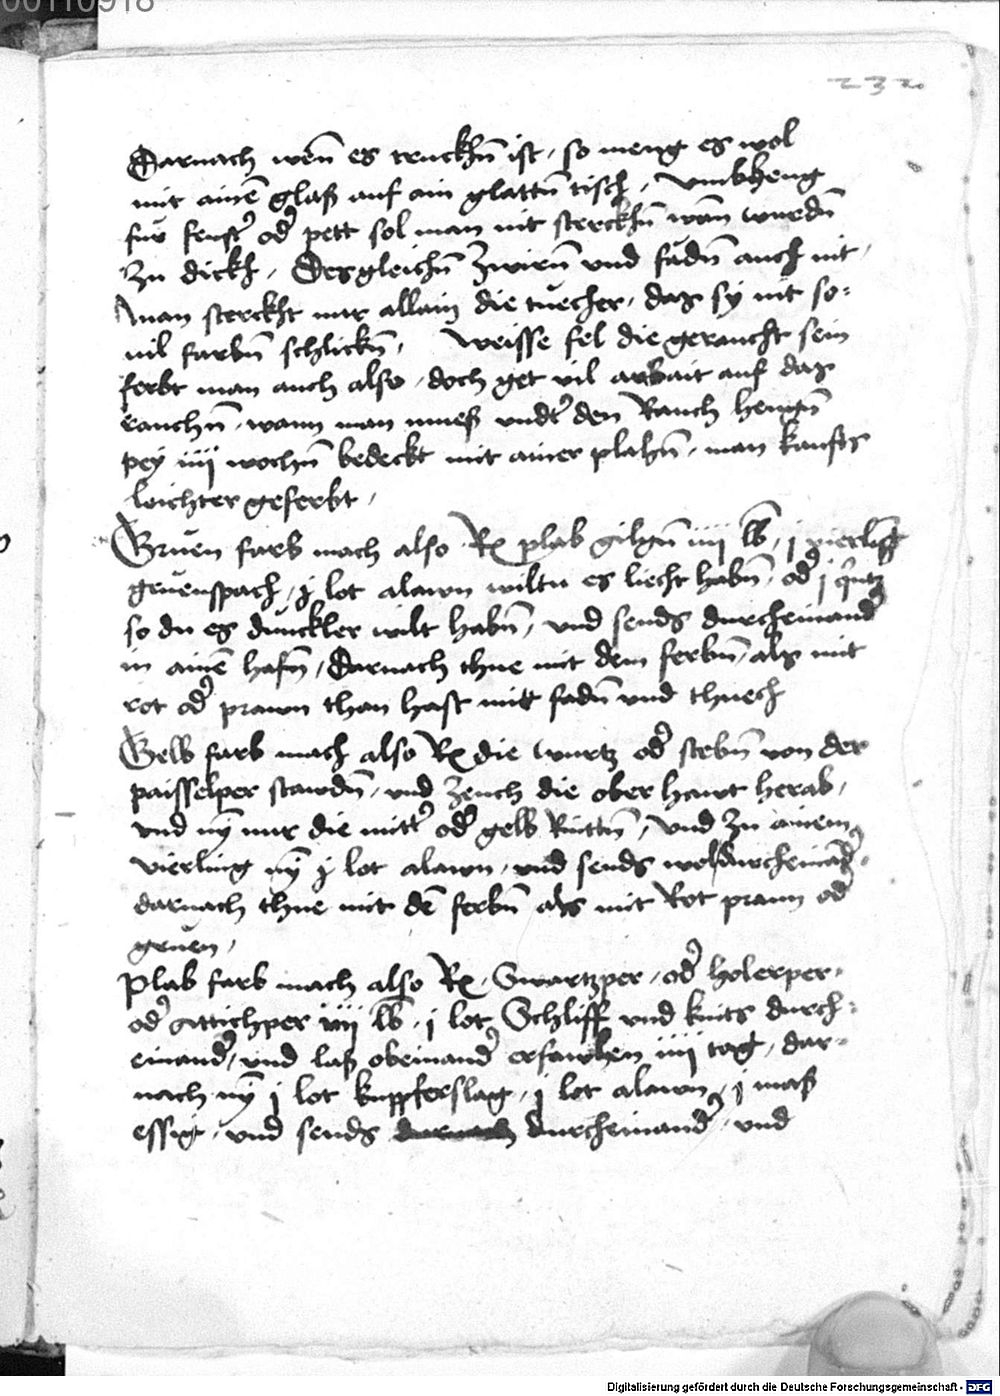 00110918
232
Darnach wen̄ es truckhn̄ ist, so meng es wol
mit ainē glaß auf ain glattn̄ tisch, vmbheng
für fenst͛ od͛ pett sol man nit sterckhn̄ wan̄ wurdn̄
zu dickh, Desgleichn̄ zwirn̄ vnd fadn̄ auch nit,
Man sterckht nur allain die tuecher, das sy nit so-
uil farbn̄ schlickn̄, Weisse fel die geraucht sein
ferbt man auch also, doch get vil arbait auf das
rauchn̄, wann man mueß vndt͛ den Rauch hengn̄
pey iiij wochn̄ bedeckt mit ainer plahn̄, man kaufts
leichter geferbt,
Gruen farb mach also Rx plab gilgn̄ iiij lb, j vierling
gruenspach, j lot alawn wiltu es liecht habn̄, od͛ j quitz
so du es dunckler wilt habn̄, vnd seuds durcheinand͛
in ainē hafn̄, Darnach thue mit dem ferbn̄, als mit
rot od͛ prawn than hast mitt fadn̄ vnd thuech
Gelb farb mach also Rx die wurtz od͛ stebn̄ von der
paisselper stawdn̄, vnd zeuch die ober hawt herab,
vnd nÿ nur die mitt͛ od͛ gelb Rintn̄, vnd zu ainem
vierling nÿ j lot alawn, vnd seuds wol durcheinād͛,
darnach thue mit dē ferbn̄ als mit Rot prawn od͛
gruen,
Plab farb mach also Rx, Swartzper, od͛ holerper,
od͛ attichper iiij lb, j lot Schliff vnd knits durch-
einand͛, vnd laß obeinand͛ erfawlen iiij tag, dar-
nach nÿ j lot kupferslag, j lot alawn, j maß
essig, vnd seuds durcheinand͛, vnd
Digitalisierung gefördert durch die Deutsche Forschungsgemeinschaft - DFG